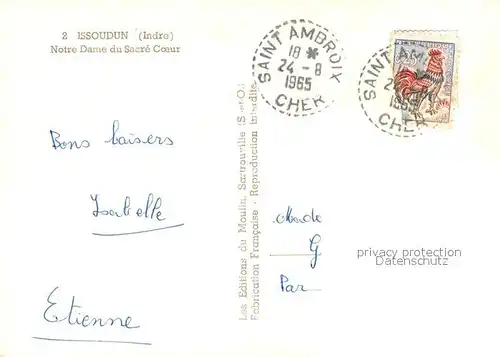 2 ISSOUDUN (Indre)
Notre Dame du Sacré Cœur
SAINT AMBROIX
18 *
24 - 8
1965
CHER
SAINT AM
24
1965
CHE
Bons baisers
Isabelle
Etienne
Les Editions du Moulin, Sartrouville (S.-et-O.)
Fabrication Française - Reproduction Interdite
G
Par
privacy protection
Datenschutz